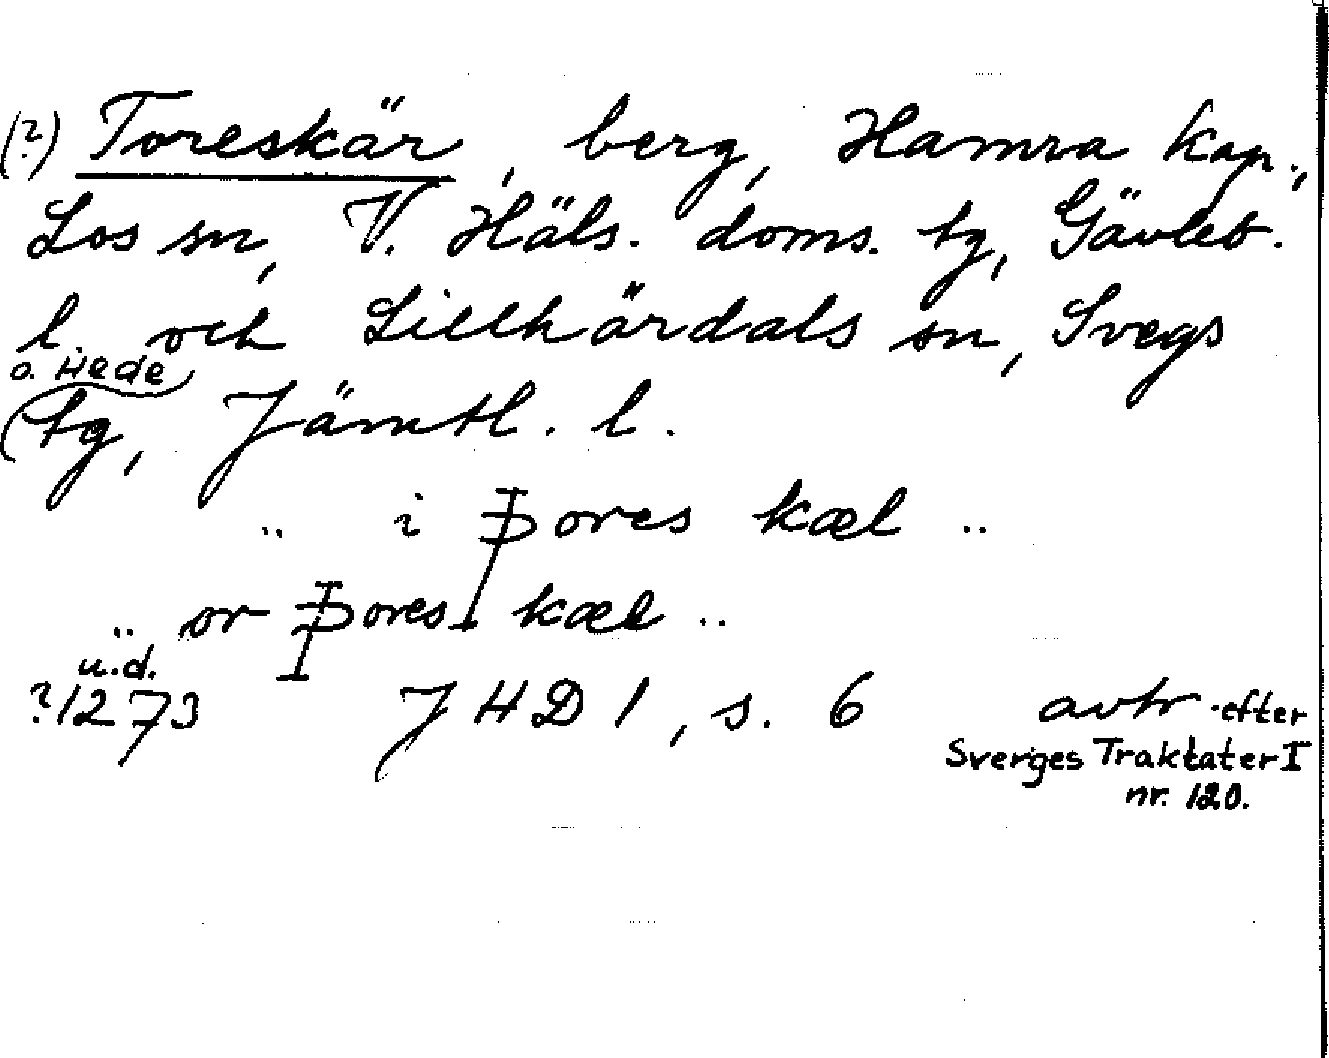 (?) Toreskär, berg, Hamra kap.,
Los sn, V. Häls. doms. tg, Gävleb.
l. och Lillhärdals sn, Svegs
o. Hede
tg, Jämtl. l.
.. i Þores kæl ..
.. or Þores kæl ..
u.d.
?1273 JHD 1, s. 6 avtr. efter
Sverges Traktater I
nr. 120.